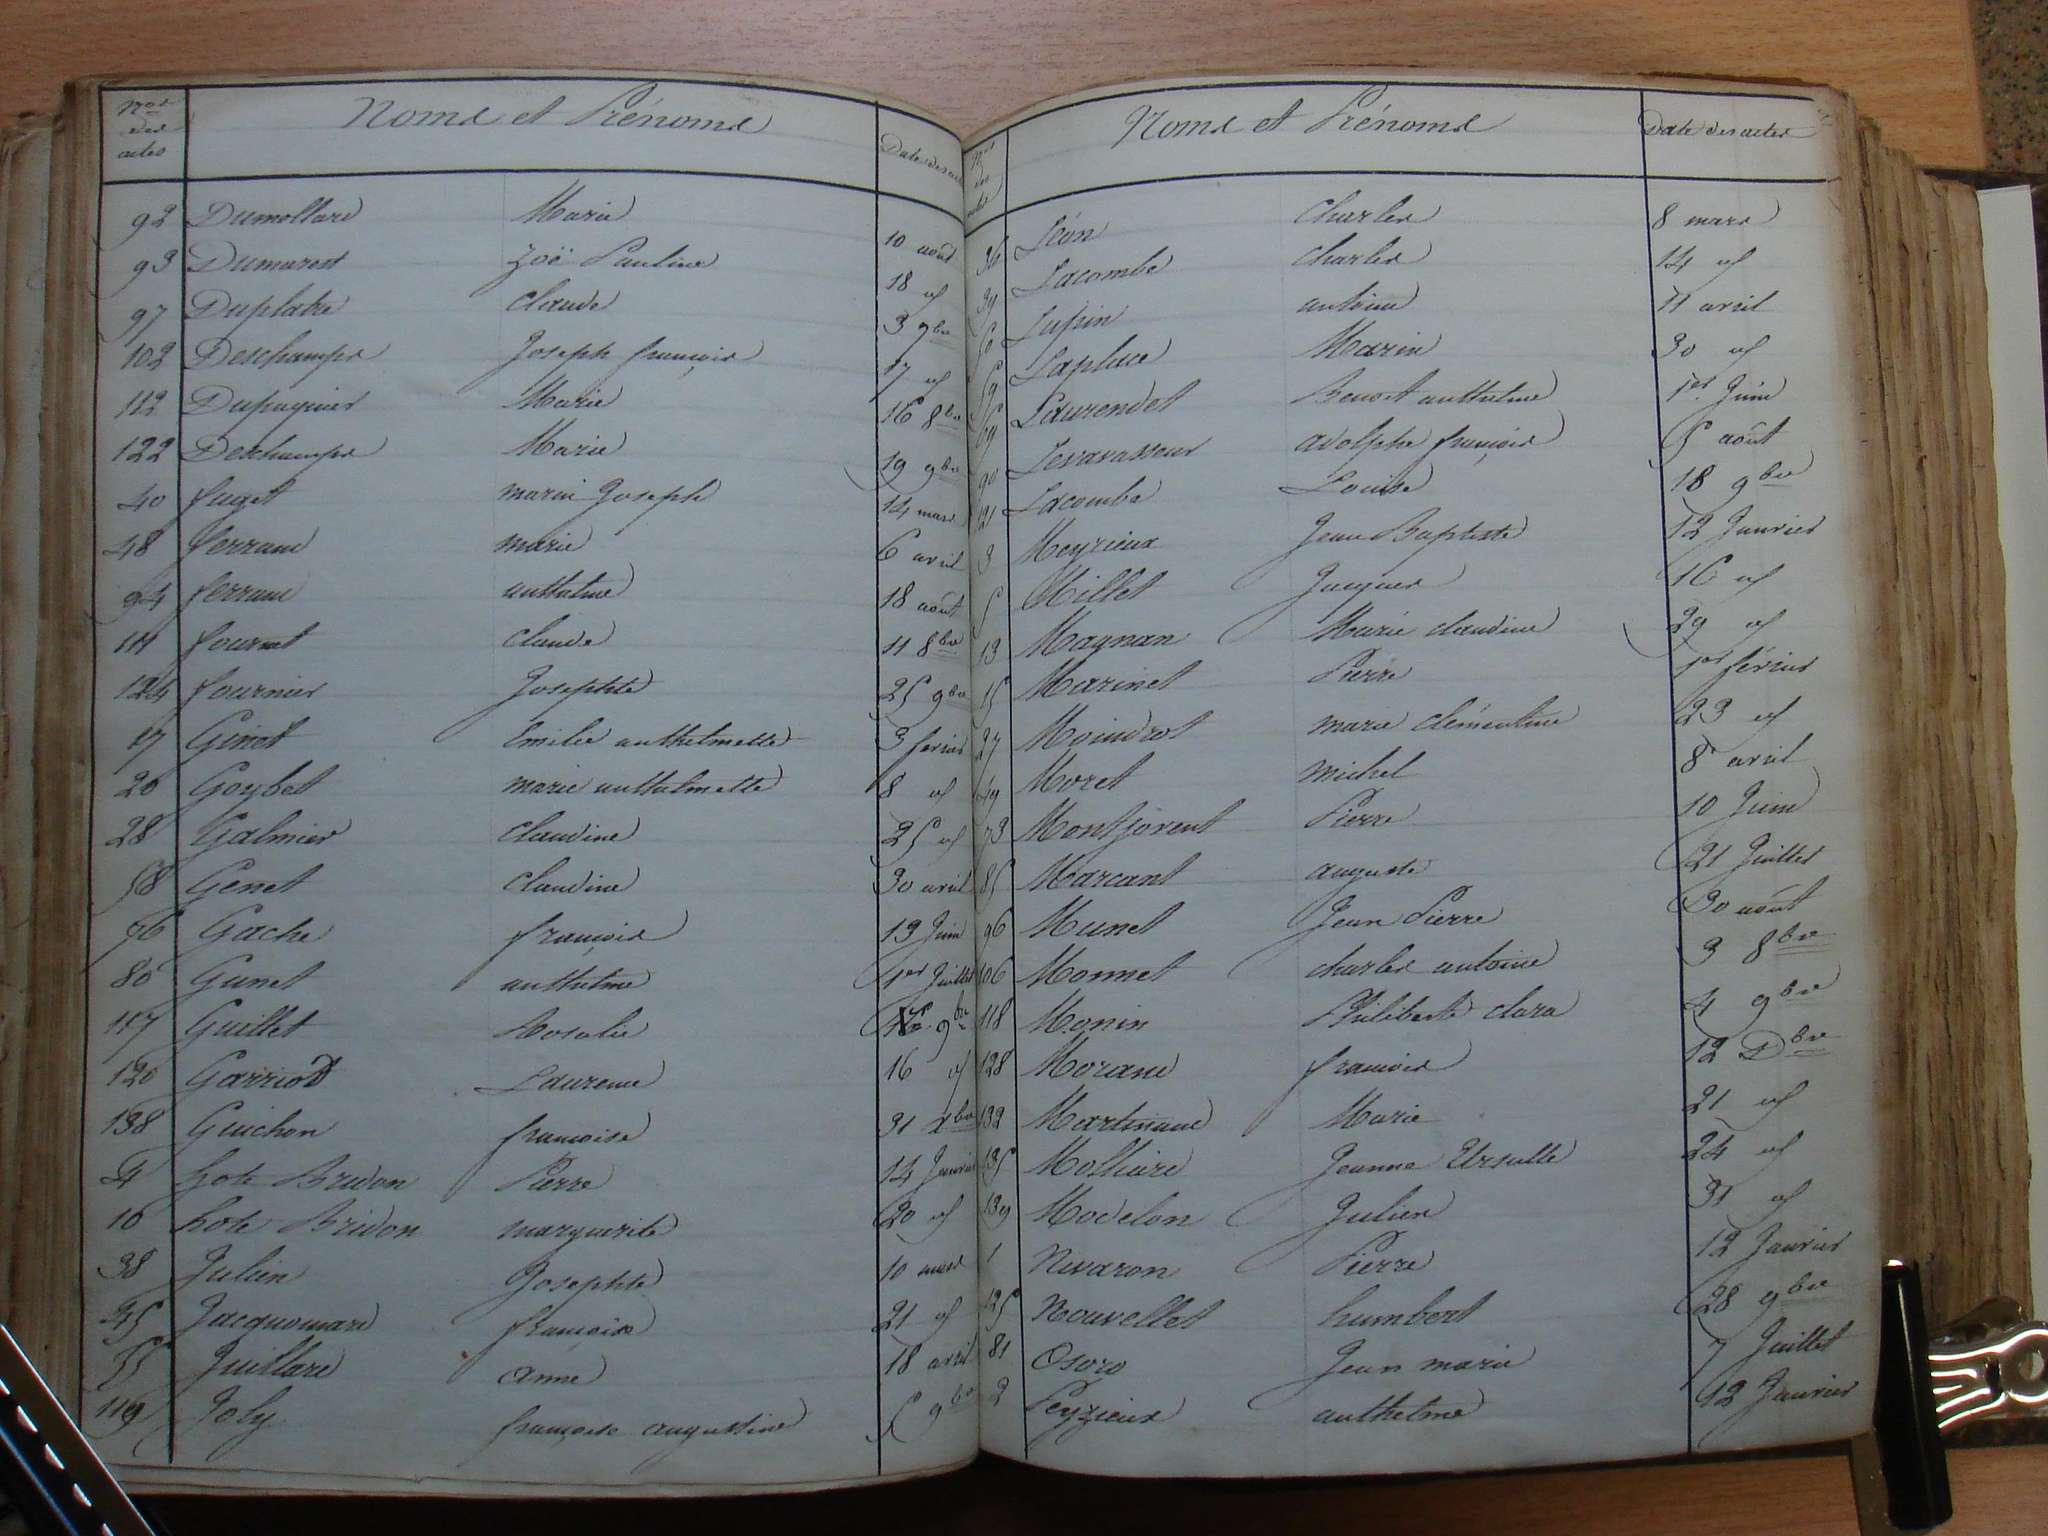 Nos des actes Noms et Prénoms Date des
92 Dumollard Marie 10 août
93 Dumarest Zoë Pauline 18 id
97 Duplatre Claude 3 7bre
102 Deschamps Joseph françois 17 id
112 Dupugnier Marie 16 8bre
122 Deschamps Marie 19 9bre
40 fuget marin Joseph 14 mars
48 ferrand marie 6 avril
94 ferrand anthelme 18 août
111 fournet claude 11 8bre
124 fournier Josephte 25 9bre
17 Ginet Emilie anthelmette 3 fevrier
20 Goybet marie anthelmette 8 id
28 Galmier claudine 25 id
58 Genet claudine 30 avril
76 Gache françois 13 Juin
80 Gunet anthelme 1er Juillet
117 Guillet Rosalie 9bre
120 Garriod Laurence 16 id
138 Guichon françoise 31 Xbre
4 hote Bridon Pierre 14 Janvier
16 hote Bridon marguerite 20 id
38 Julien Josephte 10 mars
45 Jacquemard françoise 21 id
55 Juillard anne 18 avril
119 Joly françoise augustine 5 9bre
Nos des actes Noms et Prénoms Date des actes
36 Léon Charles 8 mars
39 Lacombe Charles 14 id
50 Lupin antoine 11 avril
59 Laplace Marin 30 id
69 Laurendet Benoit anthelme 1er Juin
90 Levavasseur adolphe françois 5 août
121 Lacombe Louise 18 9bre
3 Meyrieux Jean Baptiste 12 Janvier
5 Millet Jacques 16 id
13 Magnan Marie claudine 29 id
15 Marinet Pierre 1er février
27 Moindrot marie clémentine 23 id
49 Moret michel 8 avril
73 Montjovent Pierre 10 Juin
85 Marcant auguste 21 Juillet
96 Munet Jean Pierre 30 août
106 Monnet charles antoine 3 8bre
118 Monin Philiberte clara 4 9bre
128 Morand françois 12 Dbre
132 Martinand Marie 21 id
135 Molliere Jeanne Ursulle 24 id
139 Modelon Julien 31 id
1 Nivaron Pierre 12 Janvier
125 Nouvellet humbert 28 9bre
81 Osoro Jean marie 7 Juillet
2 Peyzieux anthelme 12 Janvier